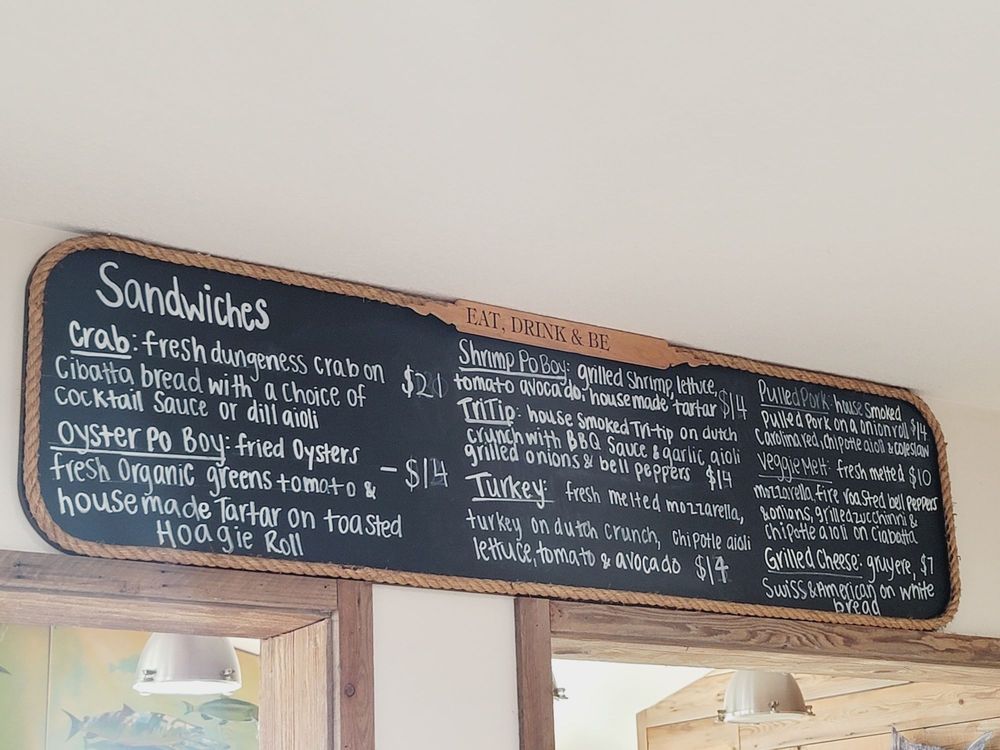 Sandwiches
Crab: fresh dungeness crab on
Cibatta bread with a choice of
Cocktail Sauce or dill aioli
Oyster Po Boy: fried Oysters
fresh Organic greens tomato & - $14
housemade Tartar on toasted
Hoagie Roll
EAT, DRINK & BE
Shrimp Po Boy: grilled Shrimp, lettuce,
tomato avocado, housemade tartar $14
TriTip: house smoked Tri-tip on dutch
crunch with BBQ Sauce & garlic aioli
grilled onions & bell peppers $14
Turkey: fresh melted mozzarella,
turkey on dutch crunch, chipotle aioli
lettuce, tomato & avocado $14
Pulled Pork: house Smoked
Pulled Pork on a onion roll $14
Carolina red, chipotle aioli & coleslaw
Veggie Melt: fresh melted $10
mozzarella, fire roasted bell peppers
& onions, grilled zucchinni &
chipotle aioli on Ciabatta
Grilled Cheese: gruyere, $7
Swiss & American on white
bread